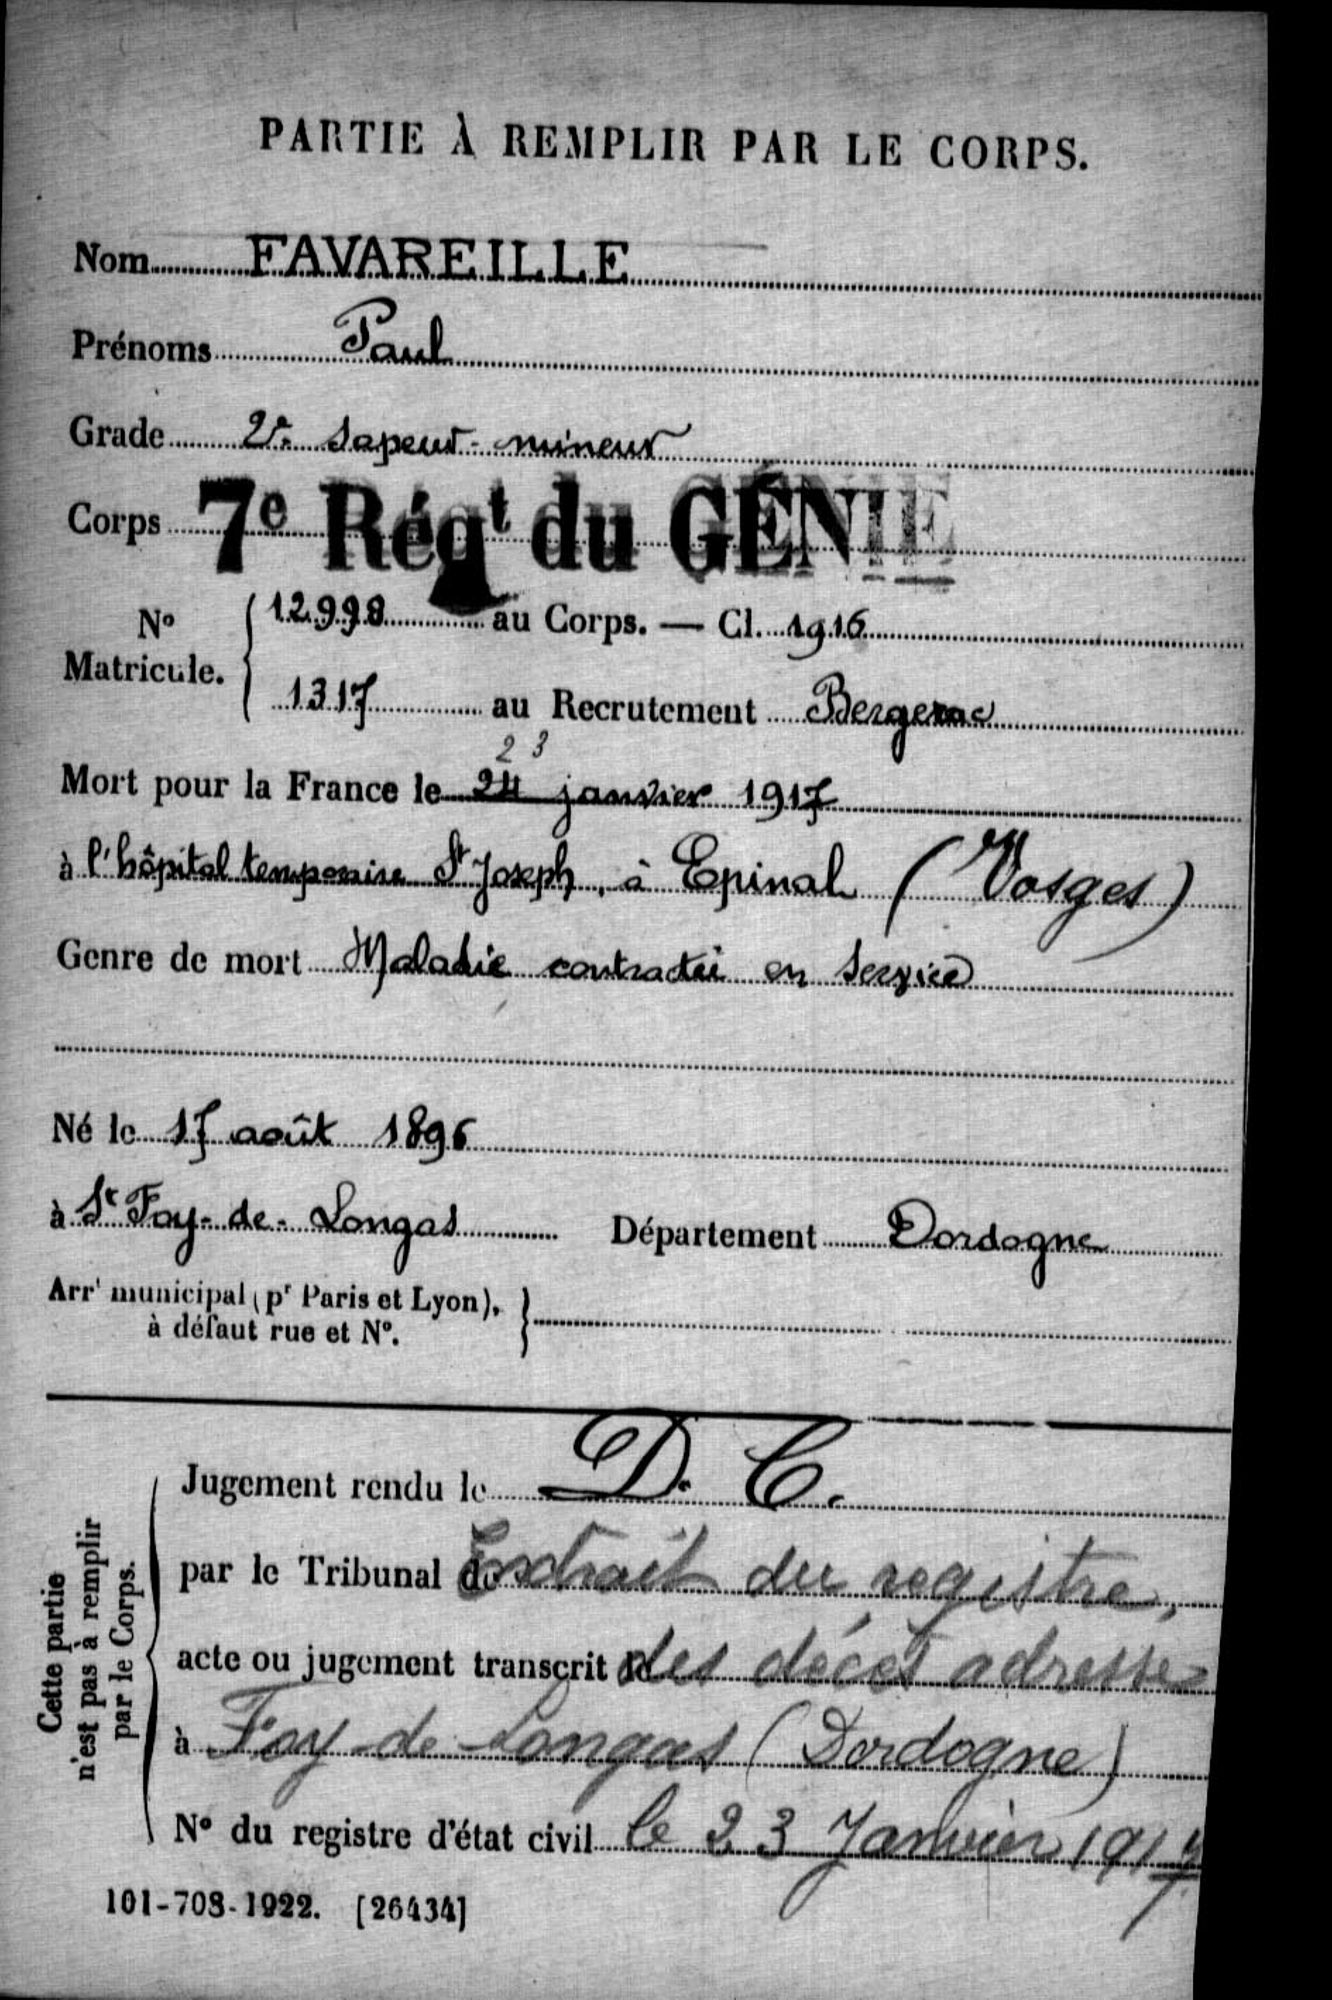 PARTIE À REMPLIR PAR LE CORPS.
Nom FAVAREILLE
Prénoms Paul
Grade 2e sapeur-mineur
Corps 7e Régt du GÉNIE
No Matricule. 12998 au Corps. — Cl. 1916
1317 au Recrutement Bergerac
23
Mort pour la France le 24 janvier 1917
à l'hôpital temporaire St Joseph, à Epinal (Vosges)
Genre de mort Maladie contractée en service
Né le 17 août 1896
à St Foy-de-Longas Département Dordogne
Arrt municipal (pr Paris et Lyon),
à défaut rue et No.
Cette partie
n'est pas à remplir
par le Corps.
Jugement rendu le D. C.
par le Tribunal de Extrait du registre
acte ou jugement transcrit le des décès adressé
à Foy-de-Longas (Dordogne)
No du registre d'état civil le 23 Janvier 1917
101-708-1922. [26434]